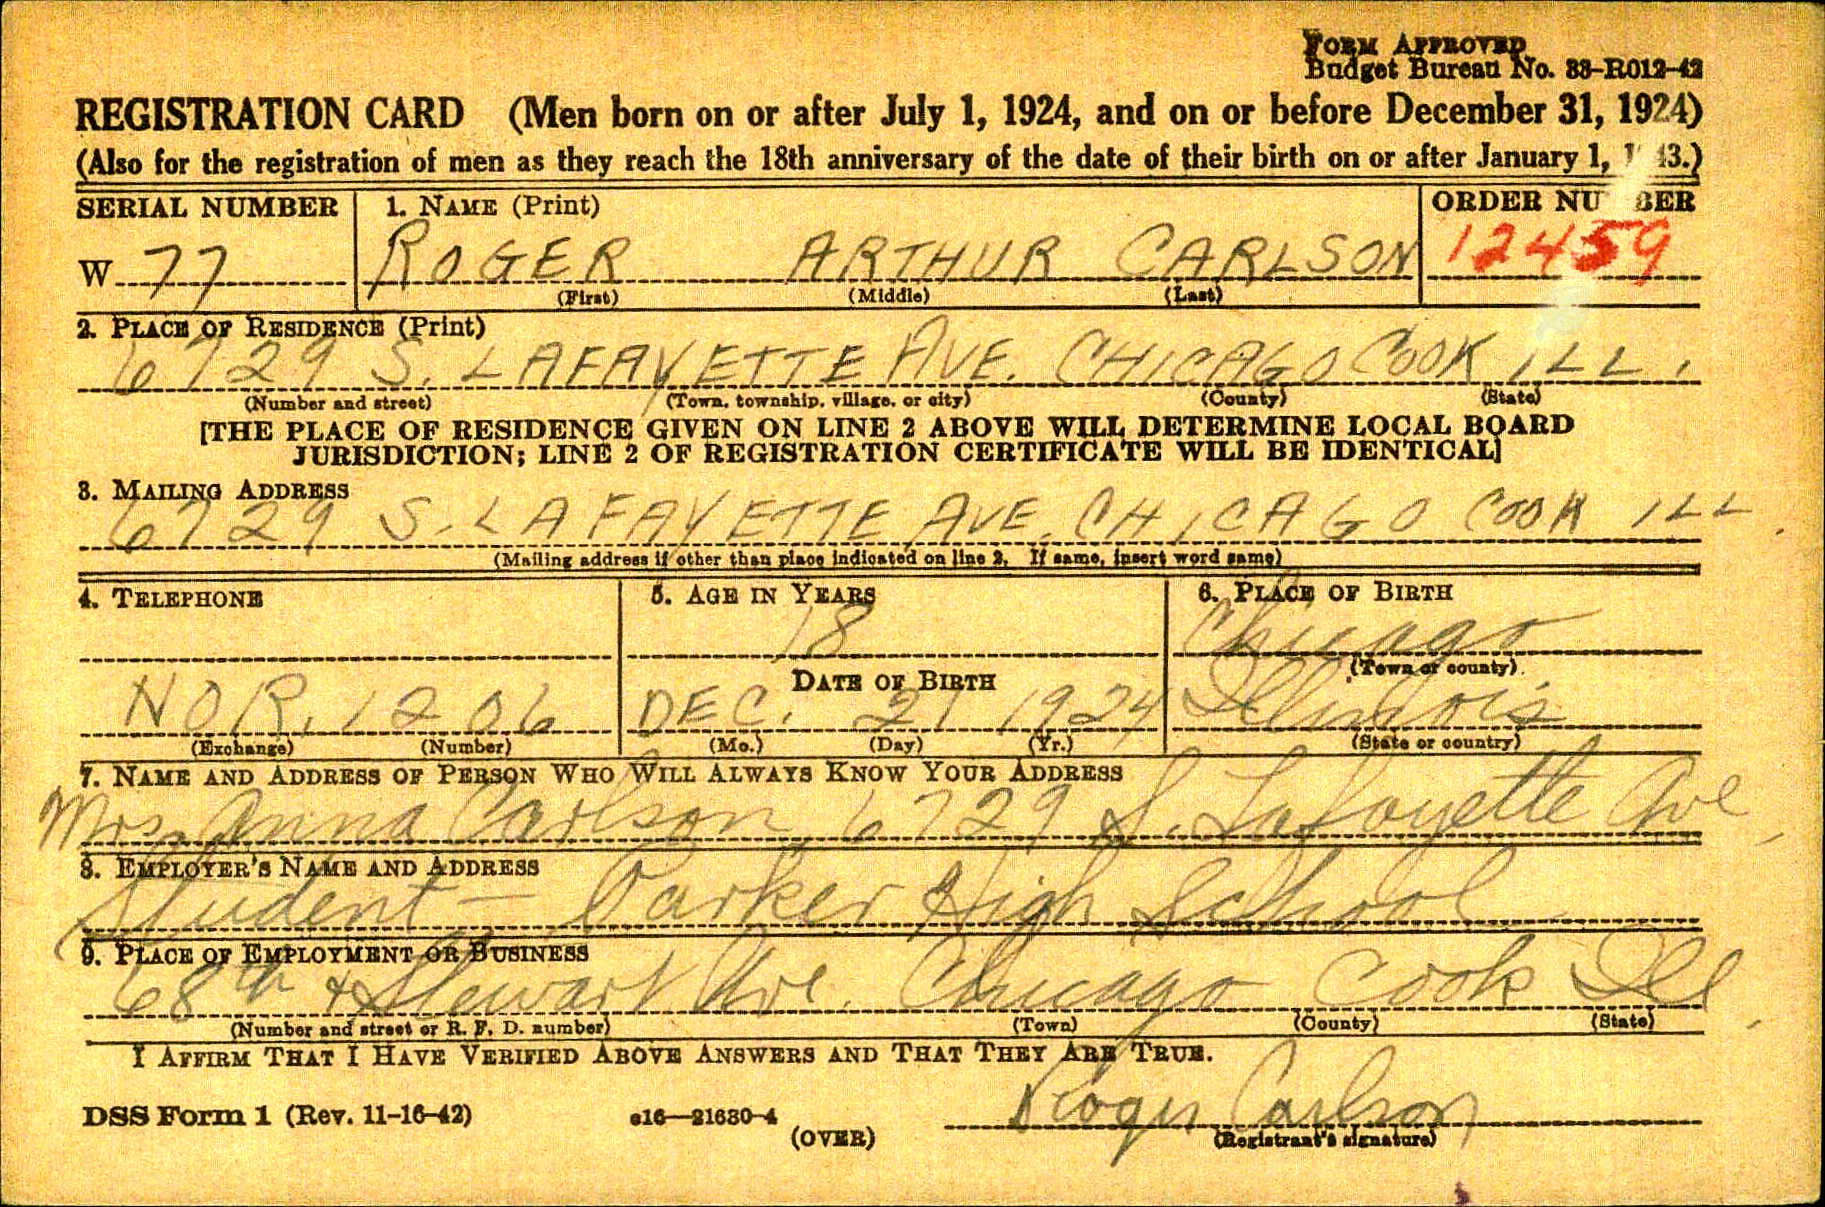 FORM APPROVED
Budget Bureau No. 33-R012-42
REGISTRATION CARD (Men born on or after July 1, 1924, and on or before December 31, 1924)
(Also for the registration of men as they reach the 18th anniversary of the date of their birth on or after January 1, 1943.)
SERIAL NUMBER 1. NAME (Print) ORDER NUMBER
W 77 ROGER ARTHUR CARLSON 12459
(First) (Middle) (Last)
2. PLACE OF RESIDENCE (Print)
6729 S. LAFAYETTE AVE. CHICAGO COOK ILL.
(Number and street) (Town, township, village, or city) (County) (State)
[THE PLACE OF RESIDENCE GIVEN ON LINE 2 ABOVE WILL DETERMINE LOCAL BOARD
JURISDICTION; LINE 2 OF REGISTRATION CERTIFICATE WILL BE IDENTICAL]
3. MAILING ADDRESS
6729 S. LAFAYETTE AVE. CHICAGO COOK ILL.
(Mailing address if other than place indicated on line 2. If same, insert word same)
4. TELEPHONE 5. AGE IN YEARS 6. PLACE OF BIRTH
18 Chicago
DATE OF BIRTH (Town or county)
NOR. 1206 DEC. 21 1924 Illinois
(Exchange) (Number) (Mo.) (Day) (Yr.) (State or country)
7. NAME AND ADDRESS OF PERSON WHO WILL ALWAYS KNOW YOUR ADDRESS
Mrs. Anna Carlson, 6729 S. Lafayette Ave,
8. EMPLOYER'S NAME AND ADDRESS
Student - Parker High School
9. PLACE OF EMPLOYMENT OR BUSINESS
68th & Stewart Ave. Chicago Cook Ill.
(Number and street or R. F. D. number) (Town) (County) (State)
I AFFIRM THAT I HAVE VERIFIED ABOVE ANSWERS AND THAT THEY ARE TRUE.
DSS Form 1 (Rev. 11-16-42) c16—21630-4 Roger Carlson
(OVER) (Registrant's signature)